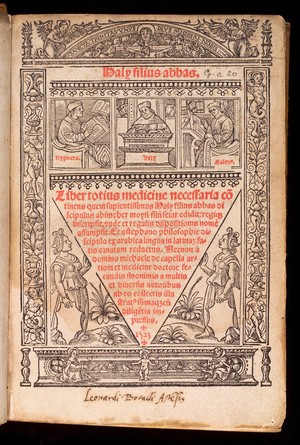 Haly filius abbas.
Cp. a. 20
hypocra. Haly Galien9.
Liber totius medicine necessaria cõ
tinens quem sapientissimus Haly filius abbas di
scipulus abimeher moysi filii seiar edidit: regiq3
inscripsit. unde et regalis dispositionis nomen
assumpsit. Et a stephano philosophie di
scipulo ex arabica lingua in latinaz sa
tis ornatam reductus. Necnon a
domino michaele de capella ar
tium et medicine doctore fe
cundis sinonimis a multis
et diversis autoribus
ab eo collectis illu
stratus summaq3 cum
diligentia im
pressus.
1523
Leonardi